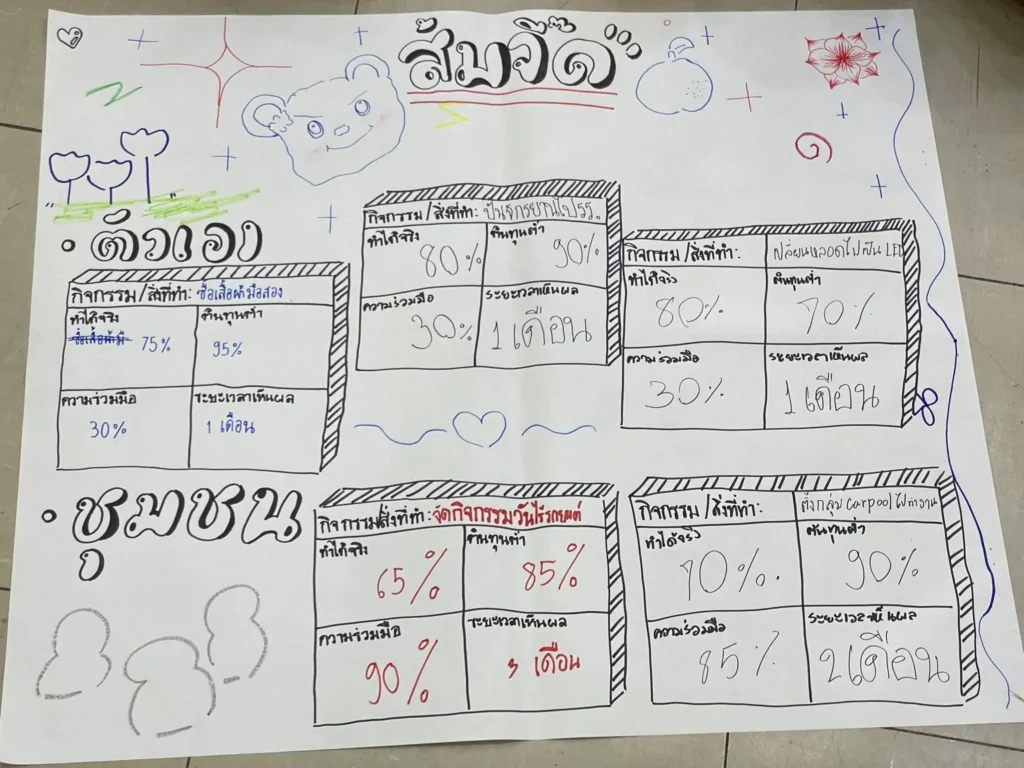 ส้มจี๊ด
• ตัวเอง
กิจกรรม/สิ่งที่ทำ: ซื้อเสื้อผ้ามือสอง
ทำได้จริง
75%
ต้นทุนต่ำ
95%
ความร่วมมือ
30%
ระยะเวลาเห็นผล
1 เดือน
กิจกรรม/สิ่งที่ทำ: ปั่นจักรยานไปรร.
ทำได้จริง
80%
ต้นทุนต่ำ
90%
ความร่วมมือ
30%
ระยะเวลาเห็นผล
1 เดือน
กิจกรรม/สิ่งที่ทำ: เปลี่ยนหลอดไฟเป็น LED
ทำได้จริง
80%
ต้นทุนต่ำ
70%
ความร่วมมือ
30%
ระยะเวลาเห็นผล
1 เดือน
• ชุมชน
กิจกรรม/สิ่งที่ทำ: จัดกิจกรรมวันไร้รถยนต์
ทำได้จริง
65%
ต้นทุนต่ำ
85%
ความร่วมมือ
90%
ระยะเวลาเห็นผล
3 เดือน
กิจกรรม/สิ่งที่ทำ: ตั้งกลุ่ม carpool ไปทำงาน
ทำได้จริง
70%
ต้นทุนต่ำ
90%
ความร่วมมือ
85%
ระยะเวลาเห็นผล
2 เดือน